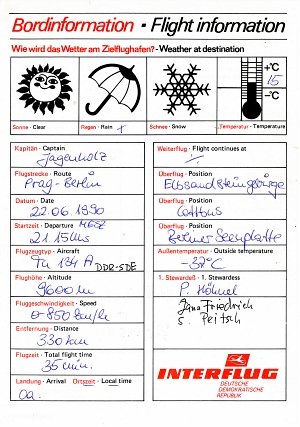 Bordinformation · Flight information
Wie wird das Wetter am Zielflughafen? - Weather at destination
+°C
15
-°C
Sonne · Clear
Regen · Rain x
Schnee · Snow
Temperatur · Temperature
Kapitän · Captain
Jagenholz
Flugstrecke · Route
Prag-Berlin
Datum · Date
22.06.1990
Startzeit · Departure MESZ
21.15 Uhr
Flugzeugtyp · Aircraft
Tu 134 A DDR-SDE
Flughöhe · Altitude
9600 m
Fluggeschwindigkeit · Speed
850 km/h
Entfernung · Distance
330 km
Flugzeit · Total flight time
35 min.
Landung · Arrival Ortszeit · Local time
ca.
Weiterflug · Flight continues at
Überflug · Position
Elbsandsteingebirge
Überflug · Position
Cottbus
Überflug · Position
Berliner Seenplatte
Außentemperatur · Outside temperature
-37°C
1. Stewardeß · 1. Stewardess
P. Höhnel
Jana Friedrich
S. Peitsch
INTERFLUG
DEUTSCHE
DEMOKRATISCHE
REPUBLIK